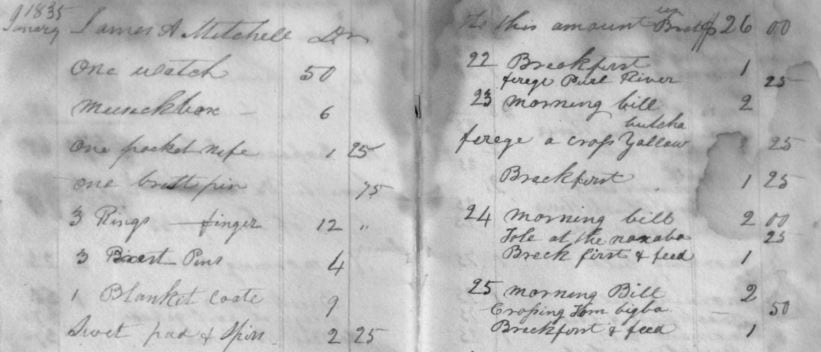 1835
January James A Mitchell Dr
One watch 50
Munckbox 6
One pocket nife 1 25
one brestpin 75
3 Rings — finger 12 "
3 Brest Pins 4
1 Blanket coate 9
Swet pad & Spirs 2 25
To this amount up Brot $ 26 00
22 Breckfirst 1
ferege Purl River 25
23 morning bill 2
butcha
ferege a cross Yallow 25
Brackfirst 1 25
24 morning bill 2 00
Tole at the noxaba 25
Breck first & feed 1
25 morning Bill 2
Crossing Tom bigba 50
Breckforst & feed 1